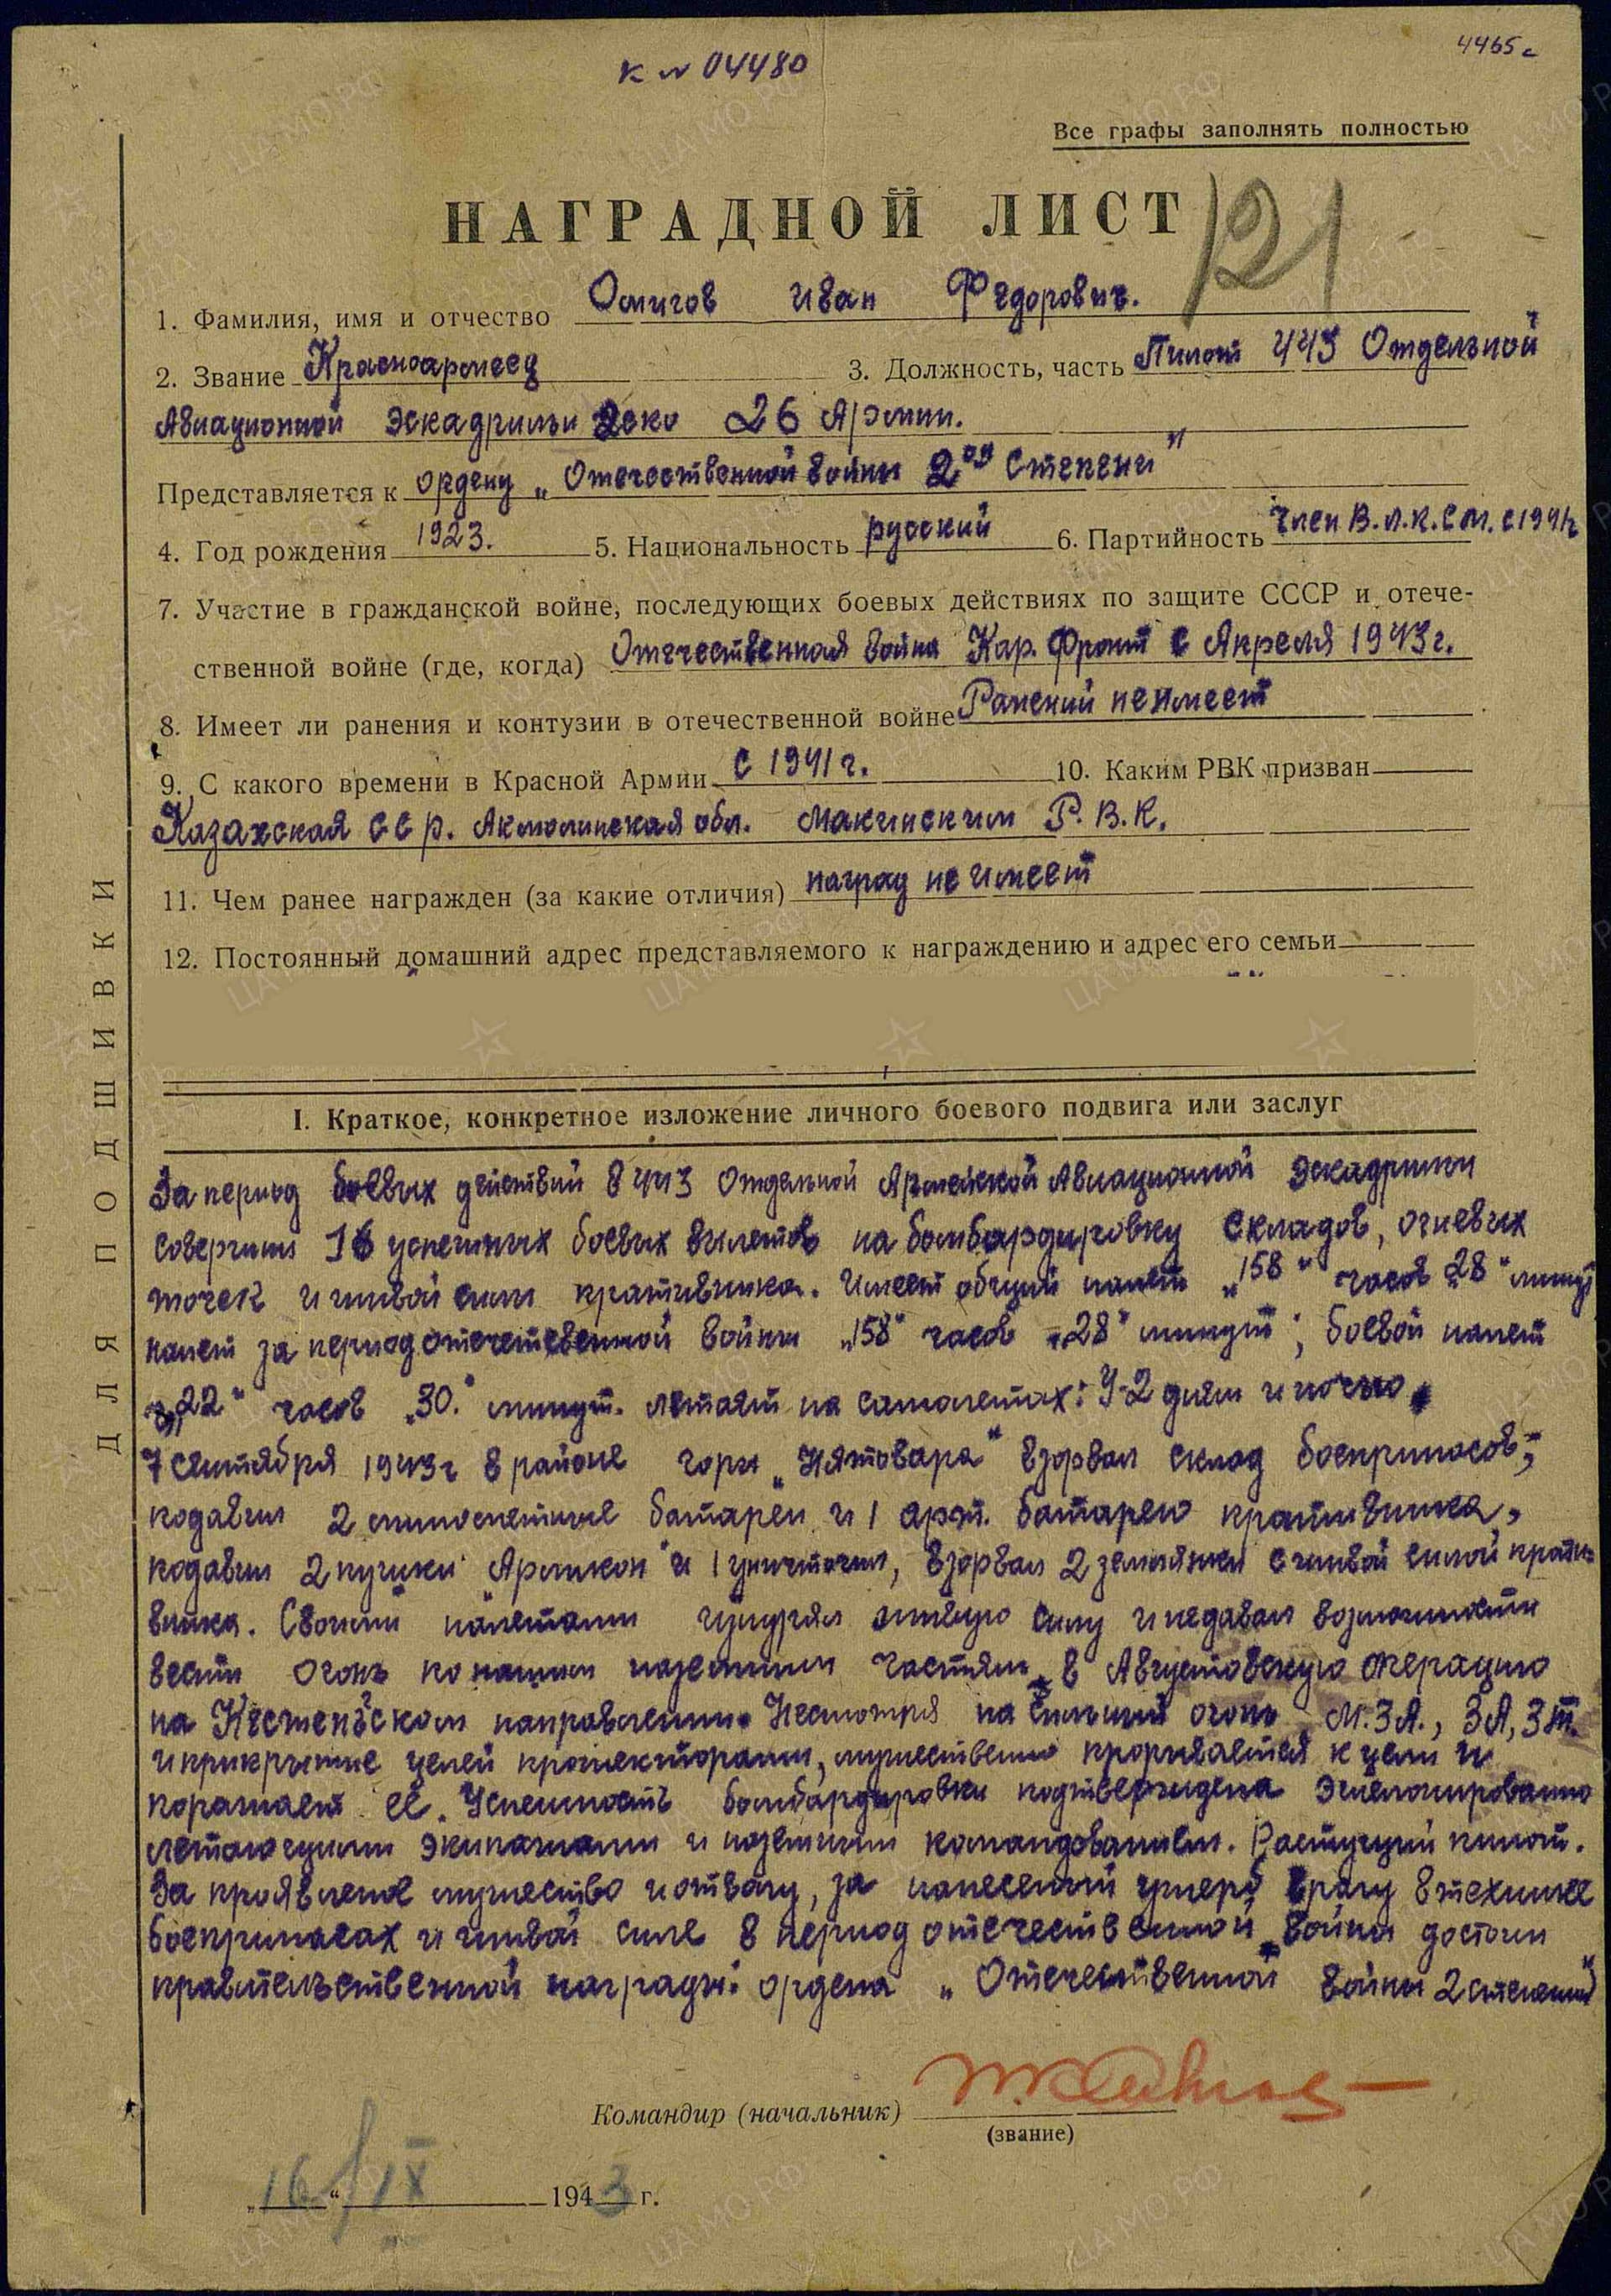 к № 04480
4465с
Все графы заполнять полностью
НАГРАДНОЙ ЛИСТ
121
1. Фамилия, имя и отчество Осипов Иван Федорович.
2. Звание Красноармеец 3. Должность, часть Пилот 443 Отдельной
Авиационной эскадрильи 26 Армии.
Представляется к ордену „Отечественной войны 2ой степени"
4. Год рождения 1923. 5. Национальность русский 6. Партийность член В.Л.К.С.М. с 1941г
7. Участие в гражданской войне, последующих боевых действиях по защите СССР и отече-
ственной войне (где, когда) Отечественная война Кар. Фронт с Апреля 1943г.
8. Имеет ли ранения и контузии в отечественной войне Ранений не имеет
9. С какого времени в Красной Армии с 1941г. 10. Каким РВК призван
Казахская ССР. Акмолинская обл. Макинским Р.В.К.
11. Чем ранее награжден (за какие отличия) наград не имеет
12. Постоянный домашний адрес представляемого к награждению и адрес его семьи
I. Краткое, конкретное изложение личного боевого подвига или заслуг
За период боевых действий в 443 Отдельной Армейской Авиационной Эскадрильи
совершил 16 успешных боевых вылетов на бомбардировку складов, огневых
точек и живой силы противника. Имеет общий налет „158" часов „28" минут
налет за период отечественной войны „158" часов „28" минут; боевой налет
„22" часов „30." минут. Летает на самолетах: У-2 днем и ночью.
7 сентября 1943г в районе горы „Нятовара" взорвал склад боеприпасов;
подавил 2 минометные батареи и 1 арт. батарею противника,
подавил 2 пушки „Эрликон" и 1 уничтожил, взорвал 2 землянки с живой силой проти-
вника. Своими налетами живую силу и не давал возможности
вести огонь по нашим наземным частям в Августовскую операцию
на Кестеньском направлении. Несмотря на сильный огонь М.ЗА., ЗА, Зт.
и прикрытие целей прожекторами, мужественно прорывается к цели и
поражает её. Успешность бомбардировки подтверждена эшелонированно
летающими экипажами и наземным командованием. Растущий пилот.
За проявленное мужество и отвагу, за нанесенный ущерб врагу в технике
боеприпасах и живой силе в период отечественной войны достоин
правительственной награды: ордена „Отечественной войны 2 степени"
Командир (начальник)
(звание)
„16" IX 1943 г.
ДЛЯ ПОДШИВКИ
ЦА МО РФ